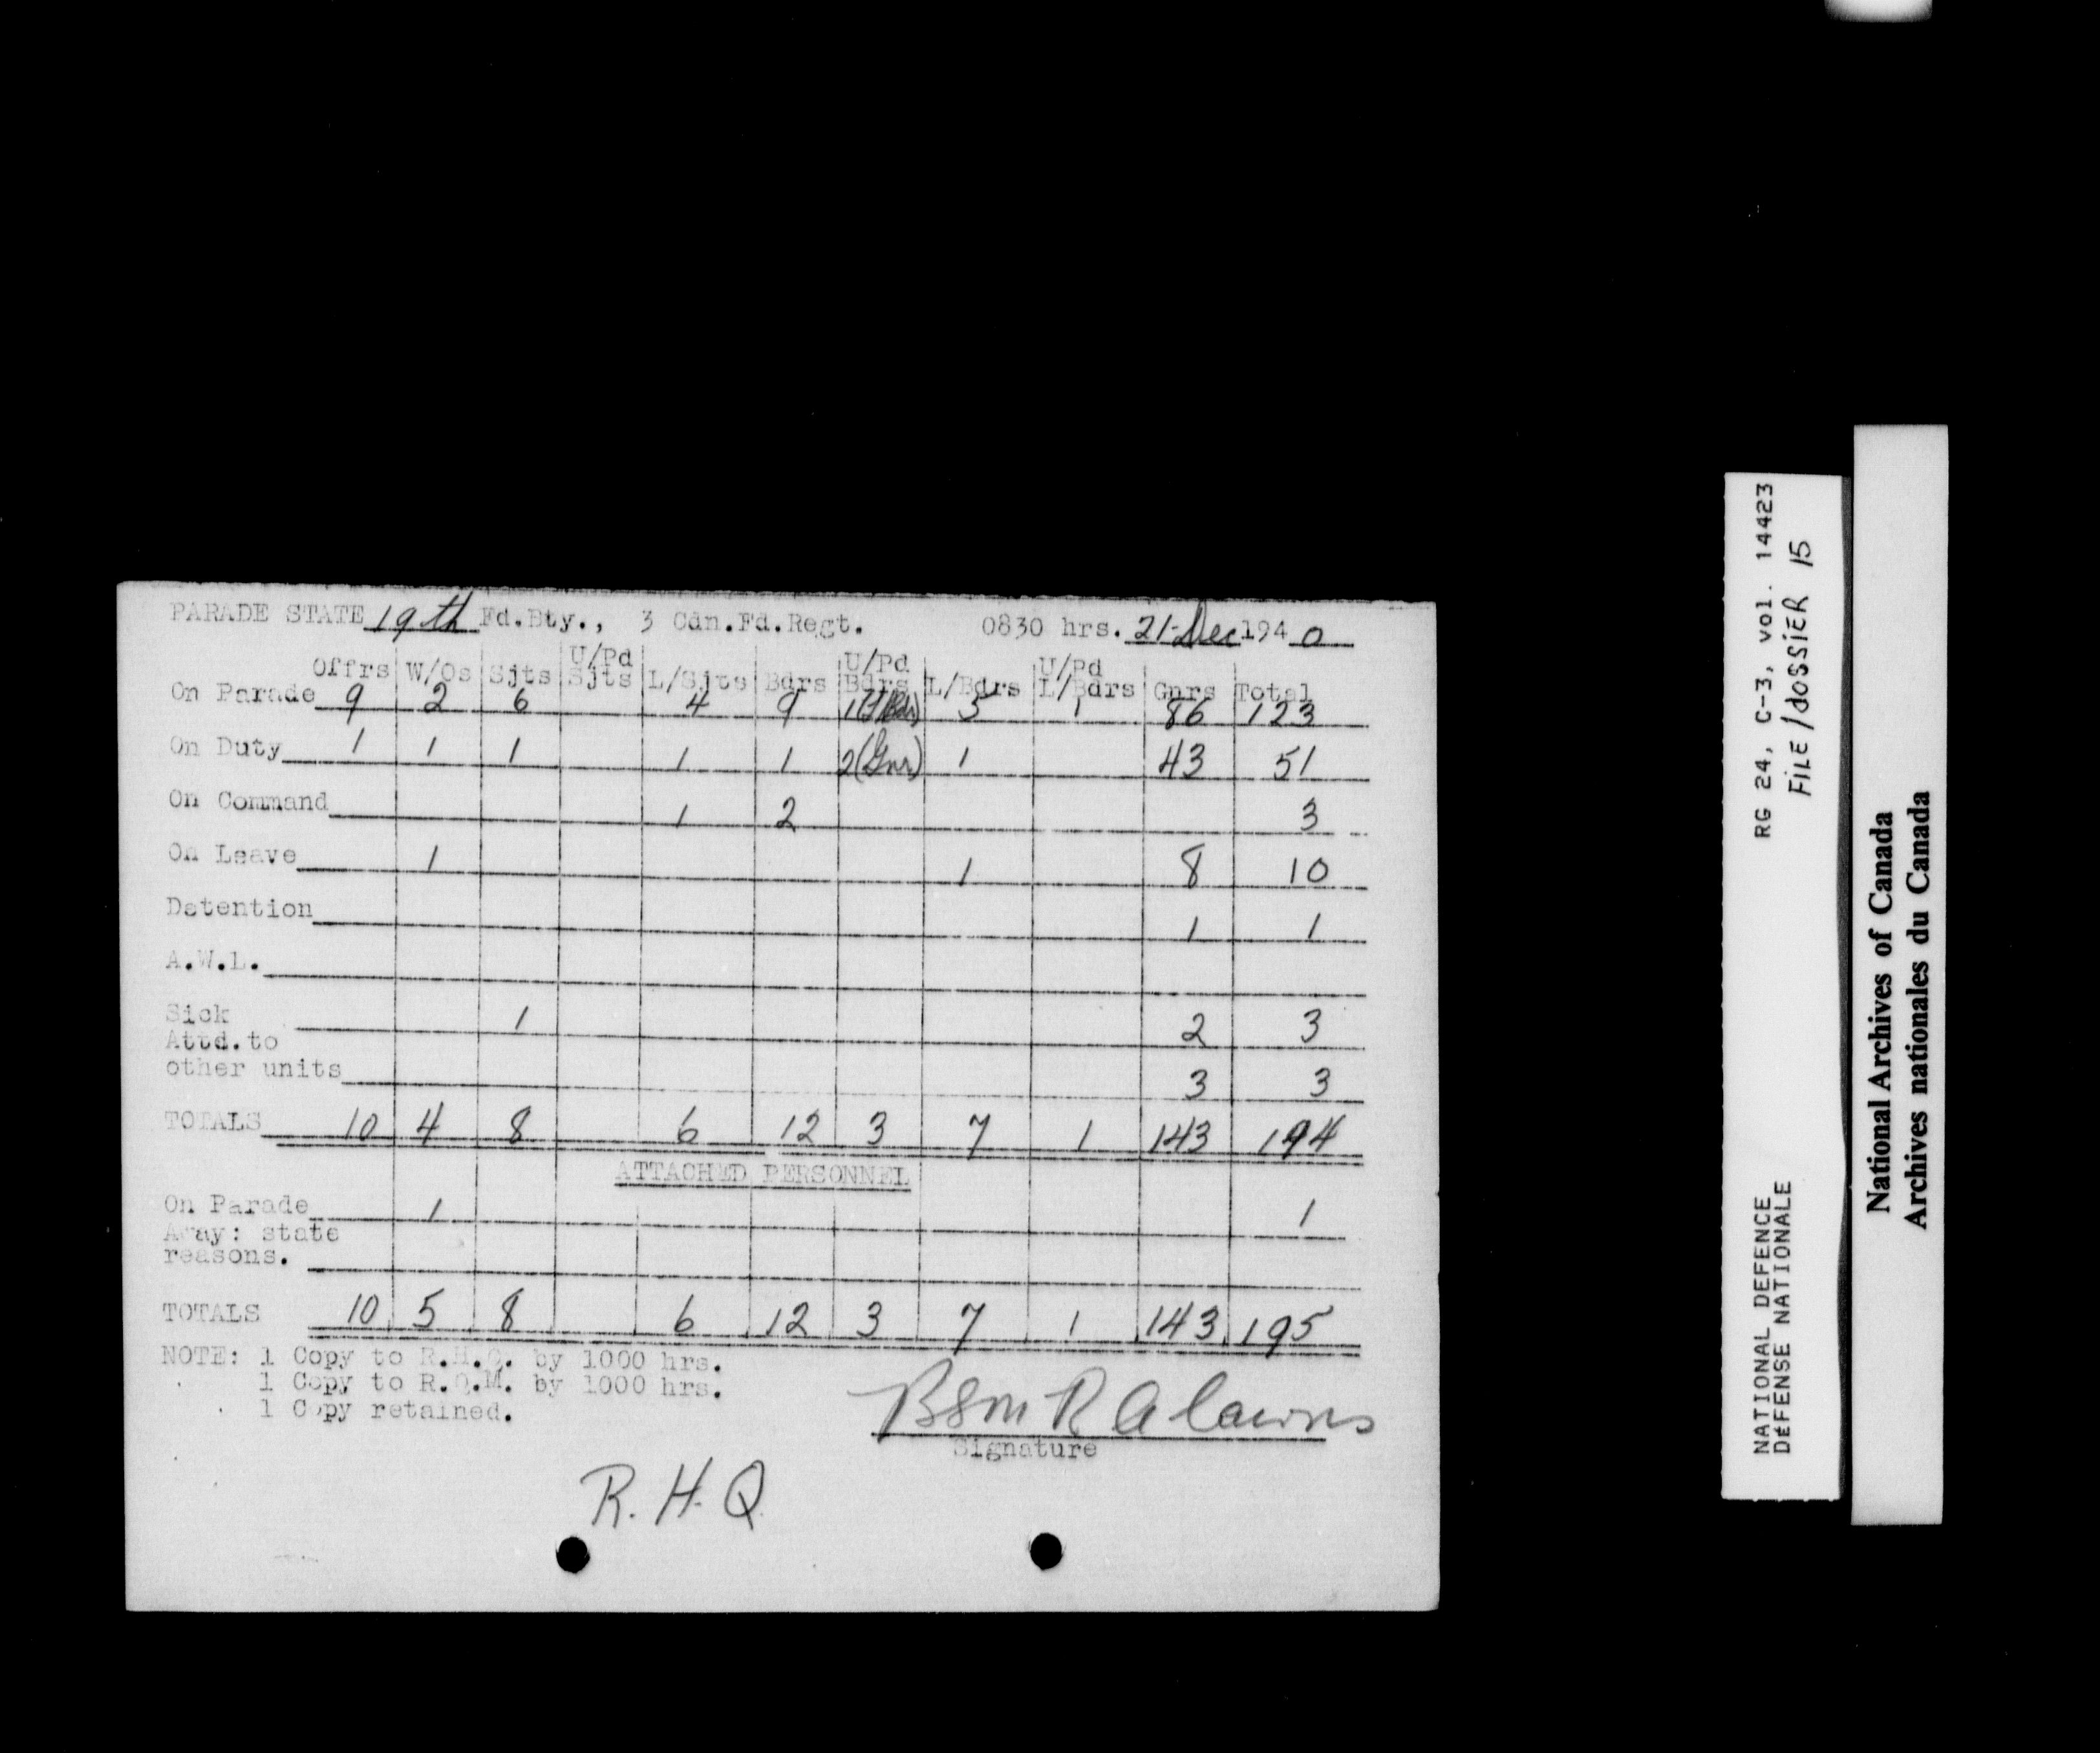 PARADE STATE 19th Fd.Bty., 3 Cdn.Fd.Regt. 0830 hrs. 21-Dec 1940
Offrs W/Os Sjts U/Pd Sjts L/Sjts Bdrs U/Pd Bdrs L/Bdrs U/Pd L/Bdrs Gnrs Total
On Parade 9 2 6 4 9 1 5 1 86 123
On Duty 1 1 1 1 1 2(Gnr) 1 43 51
On Command 1 2 3
On Leave 1 1 8 10
Detention 1 1
A.W.L.
Sick 1 2 3
Attd.to
other units 3 3
TOTALS 10 4 8 6 12 3 7 1 143 194
ATTACHED PERSONNEL
On Parade 1 1
Away: state
reasons.
TOTALS 10 5 8 6 12 3 7 1 143 195
NOTE: 1 Copy to R.H.Q. by 1000 hrs.
1 Copy to R.Q.M. by 1000 hrs.
1 Copy retained.
BSM R A
Signature
R.H.Q
RG 24, C-3, vol. 14423
FILE/dOSSiER 15
NATIONAL DEFENCE
DÉFENSE NATIONALE
National Archives of Canada
Archives nationales du Canada